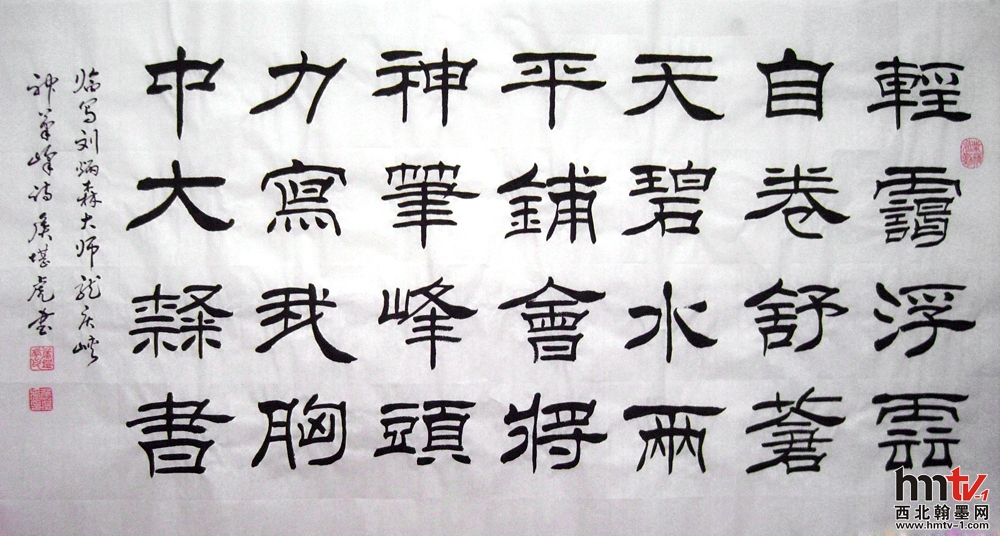 輕靄浮雲
自卷舒蒼
天碧水兩
平鋪會將
神筆峰頭
力寫我胸
中大隸書
临写刘炳森大师龙庆峡
神笔峰诗 侯堪虎书
hmtv-1
西北翰墨网
www.hmtv-1.com